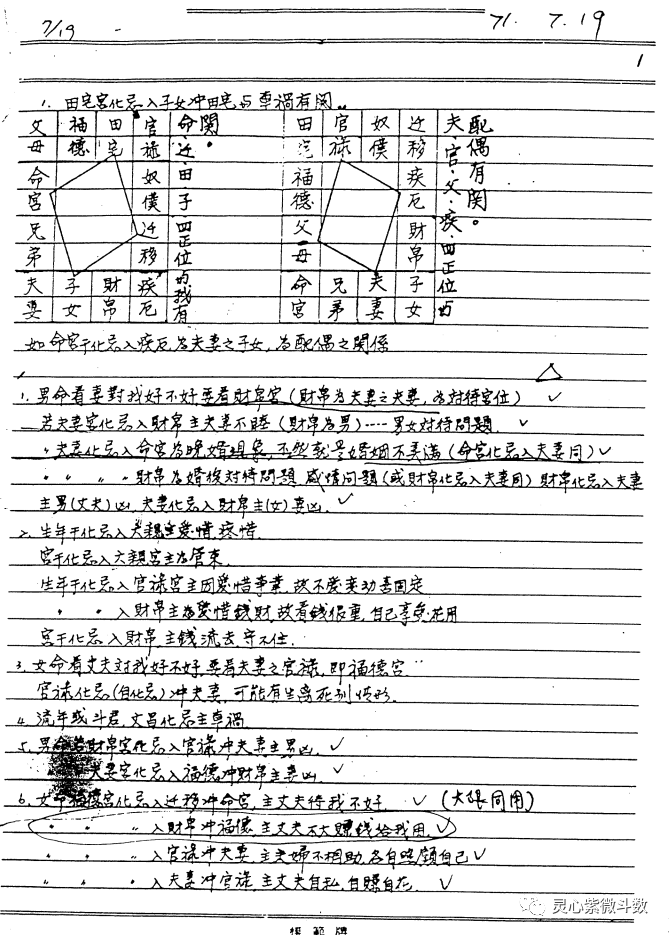 7/19
71. 7.19
1
1. 田宅宮化忌入子女冲田宅与車禍有関。
父母 福德 田宅 官祿
命宮 奴僕
兄弟 迁移
夫妻 子女 財帛 疾厄
命、迁、田、子、四正位与我有関。
田宅 官祿 奴僕 迁移
福德 疾厄
父母 財帛
命宮 兄弟 夫妻 子女
夫、官、父、疾、四正位与配偶有関。
如命宮干化忌入疾厄為夫妻之子女,為配偶之関係
1. 男命看妻對我好不好要看財帛宮(財帛為夫妻之夫妻,為対待宮位) ✓
若夫妻宮化忌入財帛主夫妻不睦(財帛為男)----男女対待問題. ✓
〃夫妻化忌入命宮為晚婚現象,不然就是婚姻不美滿(命宮化忌入夫妻同) ✓
〃 〃 〃 〃 財帛為婚後対待問題,感情問題(或財帛化忌入夫妻同)財帛化忌入夫妻
主男(丈夫)凶,夫妻化忌入財帛主(女)妻凶. ✓
2. 生年干化忌入六親主愛惜,疼惜.
宮干化忌入六親宮主為管束.
生年干化忌入官祿宮主因愛惜事業,故不愛変动喜固定
〃 〃 入財帛主為愛惜錢財,故看錢很重,自己享受花用
宮干化忌入財帛主錢流去守不住.
3. 女命看丈夫対我好不好,要看夫妻之官祿,即福德宮
官祿化忌(自化忌)冲夫妻,可能有生离死别情形.
4. 流年或斗君,文昌化忌主車禍
5. 男命若財帛宮化忌入官祿冲夫妻主男凶. ✓
夫妻宮化忌入福德冲財帛主妻凶. ✓
6. 女命福德宮化忌入迁移冲命宮,主丈夫待我不好. ✓ (大限同用)
〃 〃 〃 入財帛冲福德,主丈夫不太賺錢給我用. ✓
〃 〃 〃 入官祿冲夫妻,主夫婦不相助,各自照顧自己 ✓
〃 〃 〃 入夫妻冲官祿,主丈夫自私,自賺自花. ✓
灵心紫微斗数
模範牌